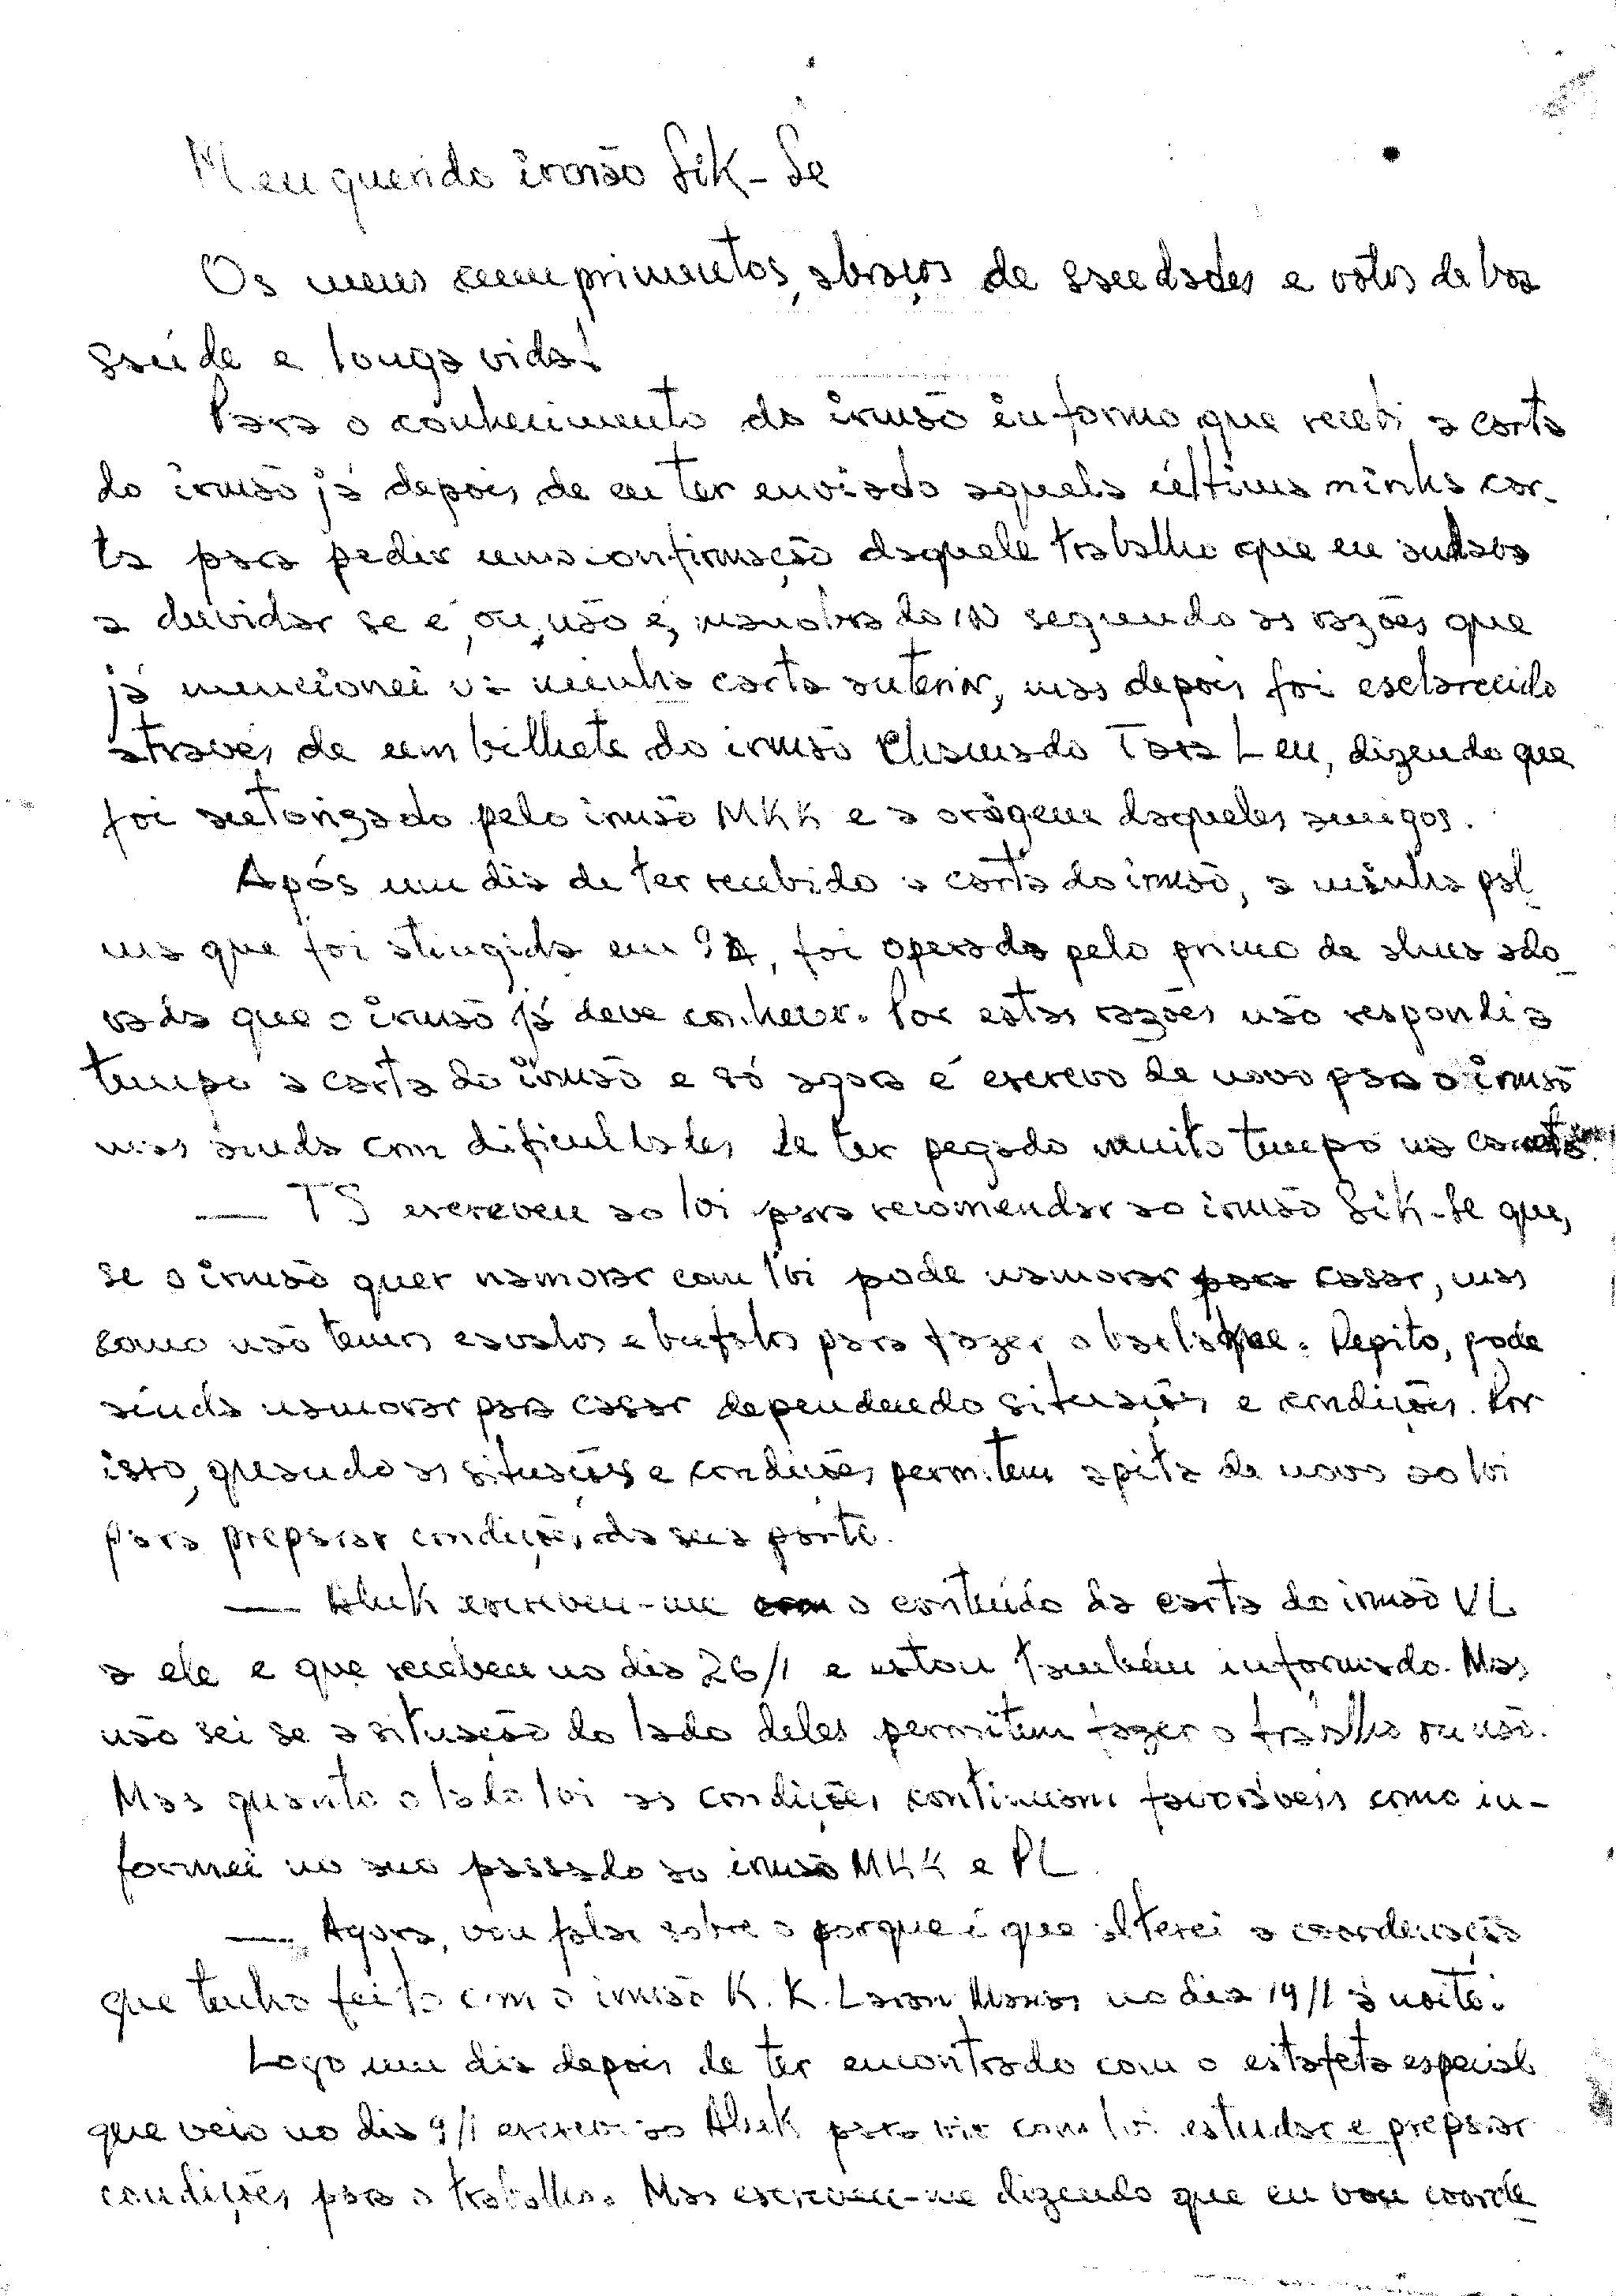 Meu querido irmão Sik-Se
Os meus cumprimentos, abraços de saudades e votos de boa
saúde e longa vida!
Para o conhecimento do irmão informo que recebi a carta
do irmão já depois de eu ter enviado aquela última minha car-
ta para pedir uma confirmação daquele trabalho que eu andava
a duvidar se é, ou não é, manobra do IN segundo as razões que
já mencionei na minha carta anterior, mas depois foi esclarecido
através de um bilhete do irmão chamado Tara Leu, dizendo que
foi autorizado pelo irmão MKK e a orígem daqueles amigos.
Após um dia de ter recebido a carta do irmão, a minha pal
ma que foi atingida em 94, foi operada pelo primo de alma ado
rada que o irmão já deve conhecer. Por estas razões não respondi a
tempo a carta do irmão e só agora é escrevo de novo para o irmão
mas ainda com dificuldades de ter pegado muito tempo na caneta.
— TS escreveu ao loi para recomendar ao irmão Sik-Se que,
se o irmão quer namorar com loi pode namorar para casar, mas
como não temos cavalos e bufalos para fazer o barlaque. Repito, pode
ainda namorar para casar dependendo situações e condições. Por
isto, quando as situações e condições permitem apita de novo ao loi
para preparar condições da sua parte.
— Aluk escreveu-me o conteúdo da carta do irmão VL
a ele e que recebeu no dia 26/1 e estou também informado. Mas
não sei se a situação do lado deles permitem fazer o trabalho ou não.
Mas quanto o lado loi as condições continuam favoráveis como in-
formei no ano passado ao irmão MKK e PL.
— Agora, vou falar sobre o porque é que alterei a coordenação
que tenho feito com o irmão K. K. Laran Manas no dia 19/1 à noite.
Logo um dia depois de ter encontrado com o estafeta especial
que veio no dia 9/1 escrevi ao Aluk para vir com loi estudar e preparar
condições para o trabalho. Mas escreveu-me dizendo que eu vou coorde